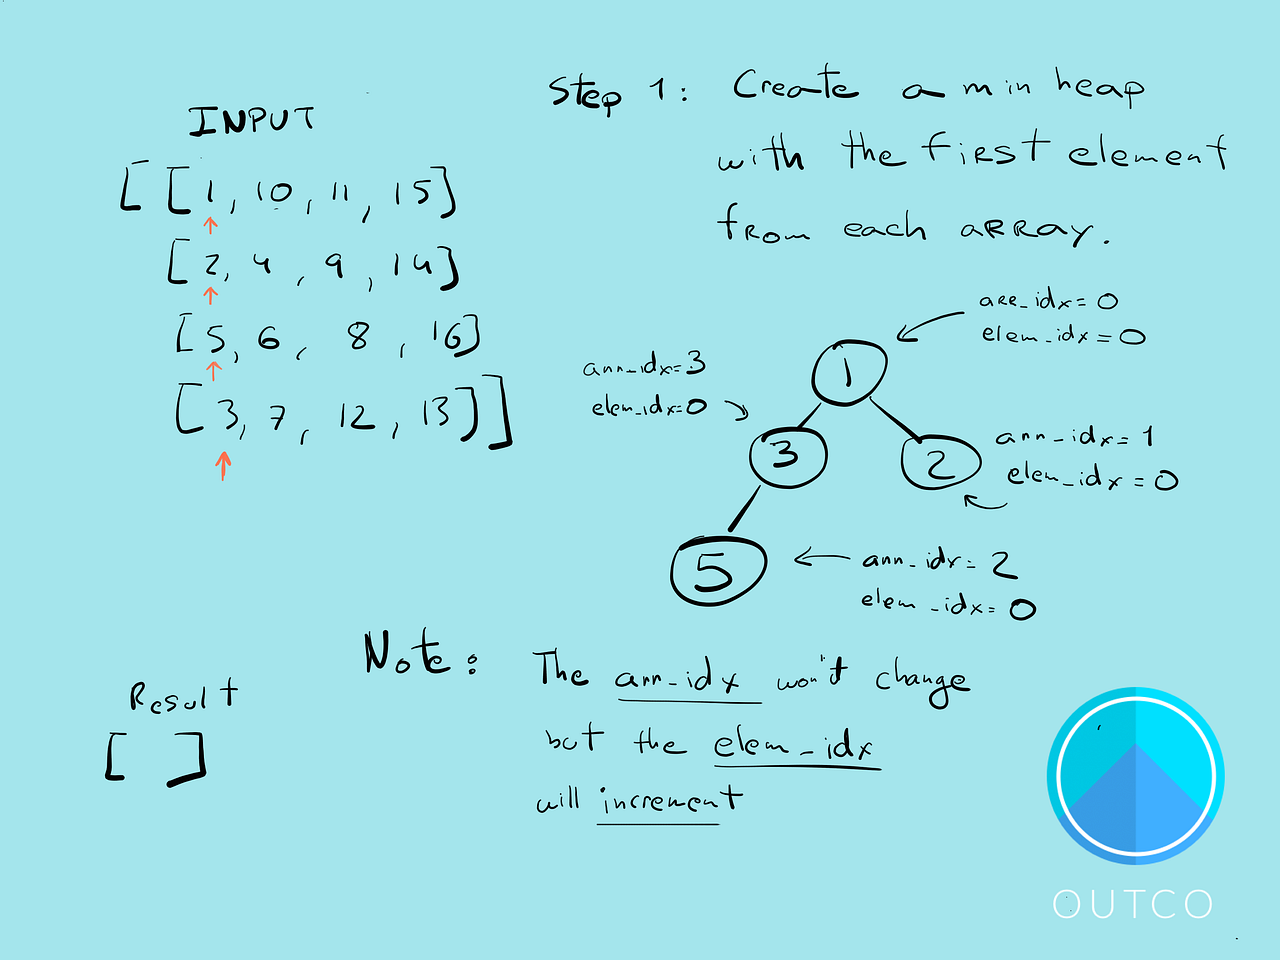 INPUT
[[1, 10, 11, 15]
[2, 4, 9, 14]
[5, 6, 8, 16]
[3, 7, 12, 13]]
Step 1: Create a min heap
with the first element
from each array.
arr_idx=0
elem_idx=0
1
arr_idx=3
elem_idx=0
3
2
arr_idx=1
elem_idx=0
5
arr_idx=2
elem_idx=0
Note: The arr_idx won't change
but the elem_idx
will increment
Result
[ ]
OUTCO